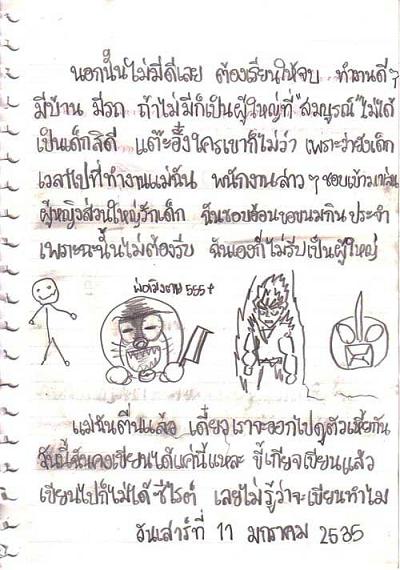 นอกนั้นไม่มีดีเลย ต้องเรียนให้จบ ทำงานดีๆ
มีบ้าน มีรถ ถ้าไม่มีก็เป็นผู้ใหญ่ที่ "สมบูรณ์" ไม่ได้
เป็นเด็กสิดี แต๊ะอั๋งใครเขาก็ไม่ว่า เพราะว่ายังเด็ก
เวลาไปที่ทำงานแม่ฉัน พนักงานสาวๆ ชอบเข้ามาเล่น
ผู้หญิงส่วนใหญ่รักเด็ก ฉันชอบอ้อนขอขนมกิน ประจำ
เพราะฉะนั้นไม่ต้องรีบ ฉันเองก็ไม่รีบเป็นผู้ใหญ่
555+
แม่ฉันตื่นแล้ว เดี๋ยวเราจะออกไปดูตัวเหี้ยกัน
วันนี้ฉันคงเขียนได้แค่นี้แหละ ขี้เกียจเขียนแล้ว
เขียนไปก็ไม่ได้ซีไรต์ เลยไม่รู้ว่าจะเขียนทำไม
วันเสาร์ที่ 11 มกราคม 2535